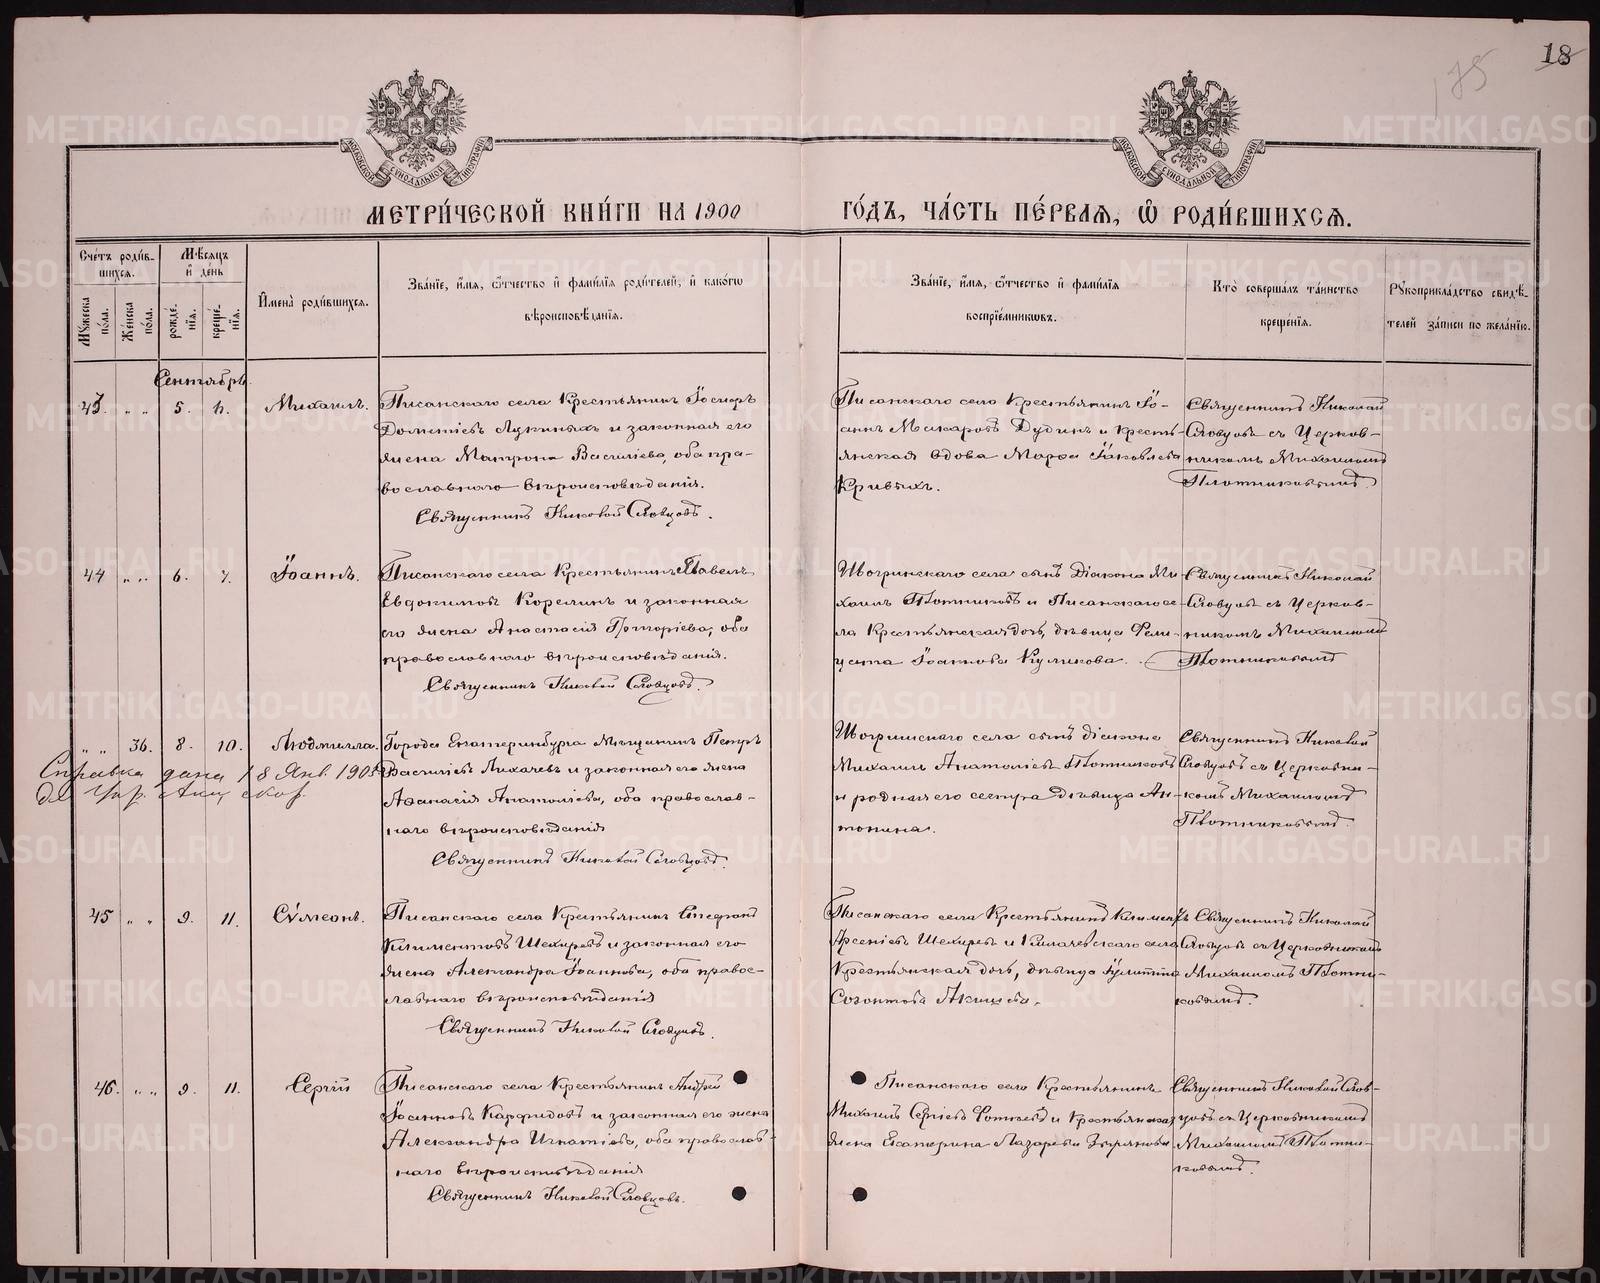 18
175
МЕТРИ́ЧЕСКОЙ КНИ́ГИ НА 1900 ГО́ДЪ, ЧА́СТЬ ПЕ́РВАЯ, Ѡ҆ РОДИ́ВШИХСЯ.
Сче́тъ роди́в-
шихся.
Мѣ́сяцъ
и҆ де́нь
Мꙋ́жеска по́ла.
Же́нска по́ла.
рожде́-
нїя.
креще́-
нїя.
И҆мена̀ роди́вшихся.
Зва́нїе, и҆́мя, ѻ҆́тчество и҆ фами́лїя роди́телей, и҆ како́гѡ
вѣроисповѣ́данїя.
Зва́нїе, и҆́мя, ѻ҆́тчество и҆ фами́лїя
воспрїе́мникѡвъ.
Кто̀ соверша́лъ та́инство
креще́нїя.
Рꙋкоприкла́дство свидѣ́-
телей за́писи по жела́нїю.
Сентябрь.
43. „ „ 5. Михаилъ.
Писанскаго села Крестьянинъ Іосифъ
Дометіевъ Лукиныхъ и законная его
жена Матрона Василіева, оба пра-
вославнаго вѣроисповѣданія.
Священникъ Николай Словцовъ.
Писанскаго села Крестьянинъ Іо-
аннъ Макаровъ Дудинъ и кресть-
янская вдова Марѳа Іаковлева
Кривыхъ.
Священникъ Николай
Словцовъ съ Церков-
никомъ Михаиломъ
Плотниковымъ.
44 „ „ 6. 7. Іоаннъ.
Писанскаго села Крестьянинъ Павелъ
Евдокимовъ Корелинъ и законная
его жена Анастасія Григоріева, оба
православнаго вѣроисповѣданія.
Священникъ Николай Словцовъ.
Шогринскаго села сынъ Діакона Ми-
хаилъ Плотниковъ и Писанскаго се-
ла Крестьянская дочь, дѣвица Фели-
цата Іоаннова Куликова.
Священникъ Николай
Словцовъ съ Церков-
никомъ Михаиломъ
Плотниковымъ
„ „ 36. 8. 10. Людмилла.
Города Екатеринбурга Мѣщанинъ Петръ
Василіевъ Лихачевъ и законная его жена
Аѳанасія Анатоліева, оба православ-
наго вѣроисповѣданія
Священникъ Николай Словцовъ.
Справка дана 18 Янв. 1905
Шогринскаго села сынъ діакона
Михаилъ Анатоліевъ Плотниковъ
и родная его сестра дѣвица Ан-
тонина.
Священникъ Николай
Словцовъ съ Церковни-
комъ Михаиломъ
Плотниковымъ.
45 „ „ 9. 11. Сѵмеонъ.
Писанскаго села Крестьянинъ Стефанъ
Климентовъ Шехиревъ и законная его
жена Александра Іоаннова, оба правос-
лавнаго вѣроисповѣданія
Священникъ Николай Словцовъ.
Писанскаго села Крестьянинъ Климентъ
Арсеніевъ Шехиревъ и села
Крестьянская дочь, дѣвица Іулитта
Созонтова Акишева.
Священникъ Николай
Словцовъ съ Церковникомъ
Михаиломъ Плотни-
ковымъ.
46. „ „ 9. 11. Сергій
Писанскаго села Крестьянинъ Андрей
Іоанновъ Карфидовъ и законная его жена
Александра Игнатіева, оба православ-
наго вѣроисповѣданія
Священникъ Николай Словцовъ.
Писанскаго села Крестьянинъ
Михаилъ Сергіевъ и Крестьянская
жена Екатерина Лазарева
Священникъ Николай Слов-
цовъ съ Церковникомъ
Михаиломъ Плотни-
ковымъ.